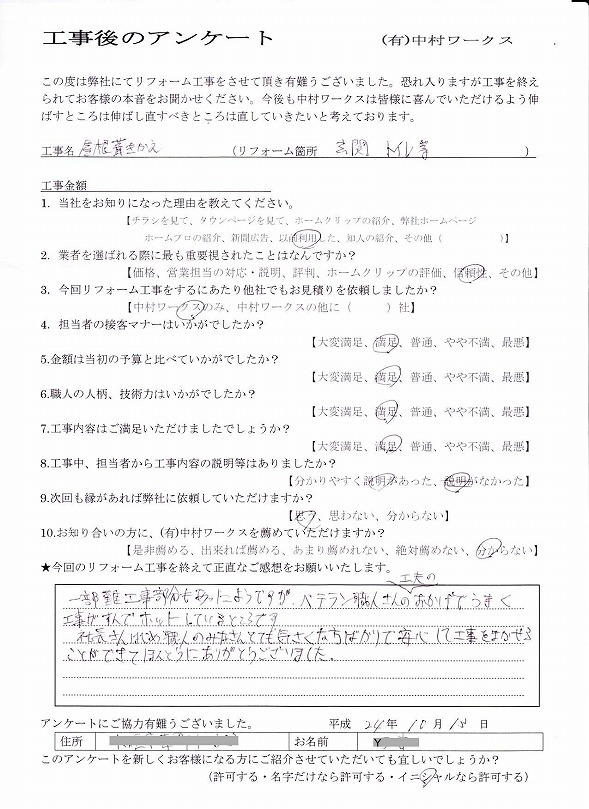 工事後のアンケート (有)中村ワークス
この度は弊社にてリフォーム工事をさせて頂き有難うございました。恐れ入りますが工事を終え
られてお客様の本音をお聞かせください。今後も中村ワークスは皆様に喜んでいただけるよう伸
ばすところは伸ばし直すべきところは直していきたいと考えております。
工事名 屋根葺きかえ (リフォーム箇所 玄関 トイレ等 )
工事金額
1. 当社をお知りになった理由を教えてください。
【チラシを見て、タウンページを見て、ホームクリップの紹介、弊社ホームページ
ホームプロの紹介、新聞広告、以前利用した、知人の紹介、その他( )】
2. 業者を選ばれる際に最も重要視されたことはなんですか?
【価格、営業担当の対応・説明、評判、ホームクリップの評価、信頼性、その他】
3. 今回リフォーム工事をするにあたり他社でもお見積りを依頼しましたか?
【中村ワークスのみ、中村ワークスの他に( )社】
4. 担当者の接客マナーはいかがでしたか?
【大変満足、満足、普通、やや不満、最悪】
5.金額は当初の予算と比べていかがでしたか?
【大変満足、満足、普通、やや不満、最悪】
6.職人の人柄、技術力はいかがでしたか?
【大変満足、満足、普通、やや不満、最悪】
7.工事内容はご満足いただけましたでしょうか?
【大変満足、満足、普通、やや不満、最悪】
8.工事中、担当者から工事内容の説明等はありましたか?
【分かりやすく説明があった、説明がなかった】
9.次回も縁があれば弊社に依頼していただけますか?
【思う、思わない、分からない】
10.お知り合いの方に、(有)中村ワークスを薦めていただけますか?
【是非薦める、出来れば薦める、あまり薦めれない、絶対薦めない、分からない】
★今回のリフォーム工事を終えて正直なご感想をお願いいたします。
工夫の
一部難工事部分もあったようですが、ベテラン職人さんのおかげでうまく
工事がすんでホットしているところです
社長さんはじめ職人のみなさんとても気さくな方ばかりで安心して工事をまかせる
ことができてほんとうにありがとうございました。
アンケートにご協力有難うございました。 平成 24年 10月 18日
住所 お名前 Y
このアンケートを新しくお客様になる方にご紹介させていただいても宜しいでしょうか?
(許可する・名字だけなら許可する・イニシャルなら許可する)